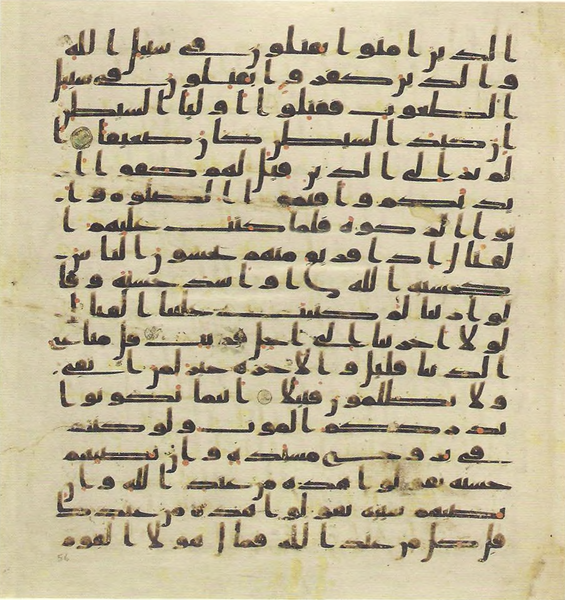 الذين امنوا يقتلون في سبيل الله
والذين كفروا يقتلون في سبيل
الطغوت فقتلوا اوليا الشيطن
ان كيد الشيطن كان ضعيفا ا
لم تر الى الذين قيل لهم كفوا ا
يديكم واقيموا الصلوة وا
توا الزكوة فلما كتب عليهم ا
لقتال اذا فريق منهم يخشون الناس
كخشية الله او اشد خشية وقا
لوا ربنا لم كتبت علينا القتال
لولا اخرتنا الى اجل قريب قل متاع
الدنيا قليل والاخرة خير لمن اتقى
ولا تظلمون فتيلا اينما تكونوا
يدرككم الموت ولو كنتم
في بروج مشيدة وان تصبهم
حسنة يقولوا هذه من عند الله وان
تصبهم سيئة يقولوا هذه من عندك
قل كل من عند الله فمال هولا القوم
56